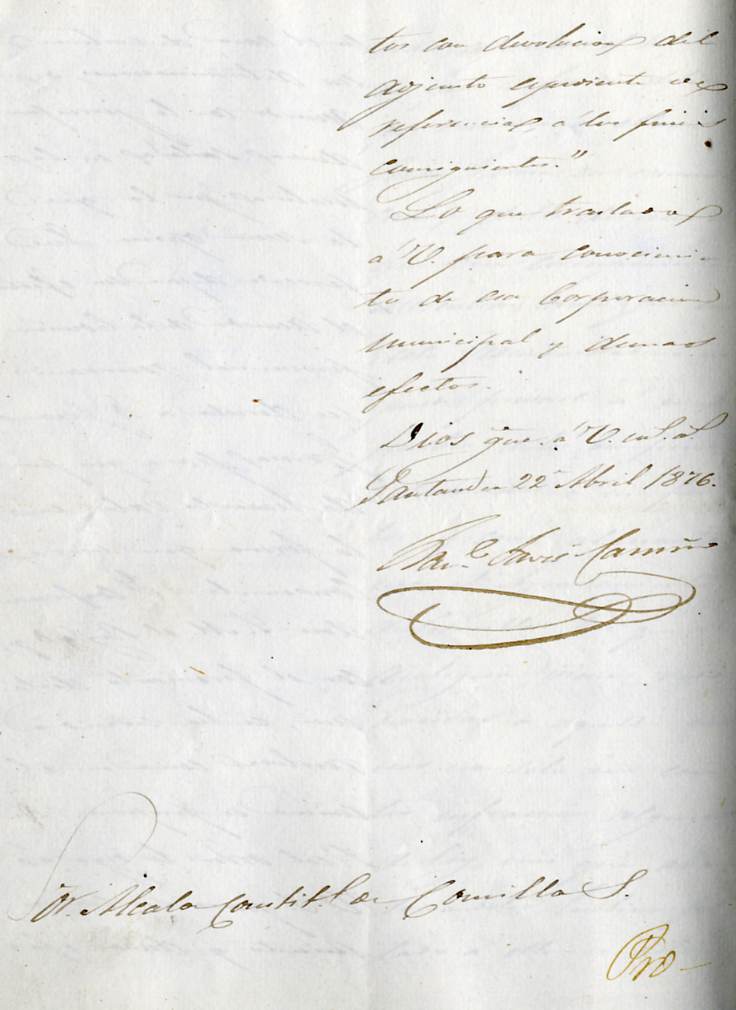 tos con devolucion del
adjunto espediente de
referencia, a los fines
consiguientes."
Lo que traslado
á V. para conocimien
to de esa Corporacion
municipal y demas
efectos.
Dios gue. á V. m.s a.s
Santander 22 Abril 1876.
Sor. Alcalde Constit.l de Comillas.